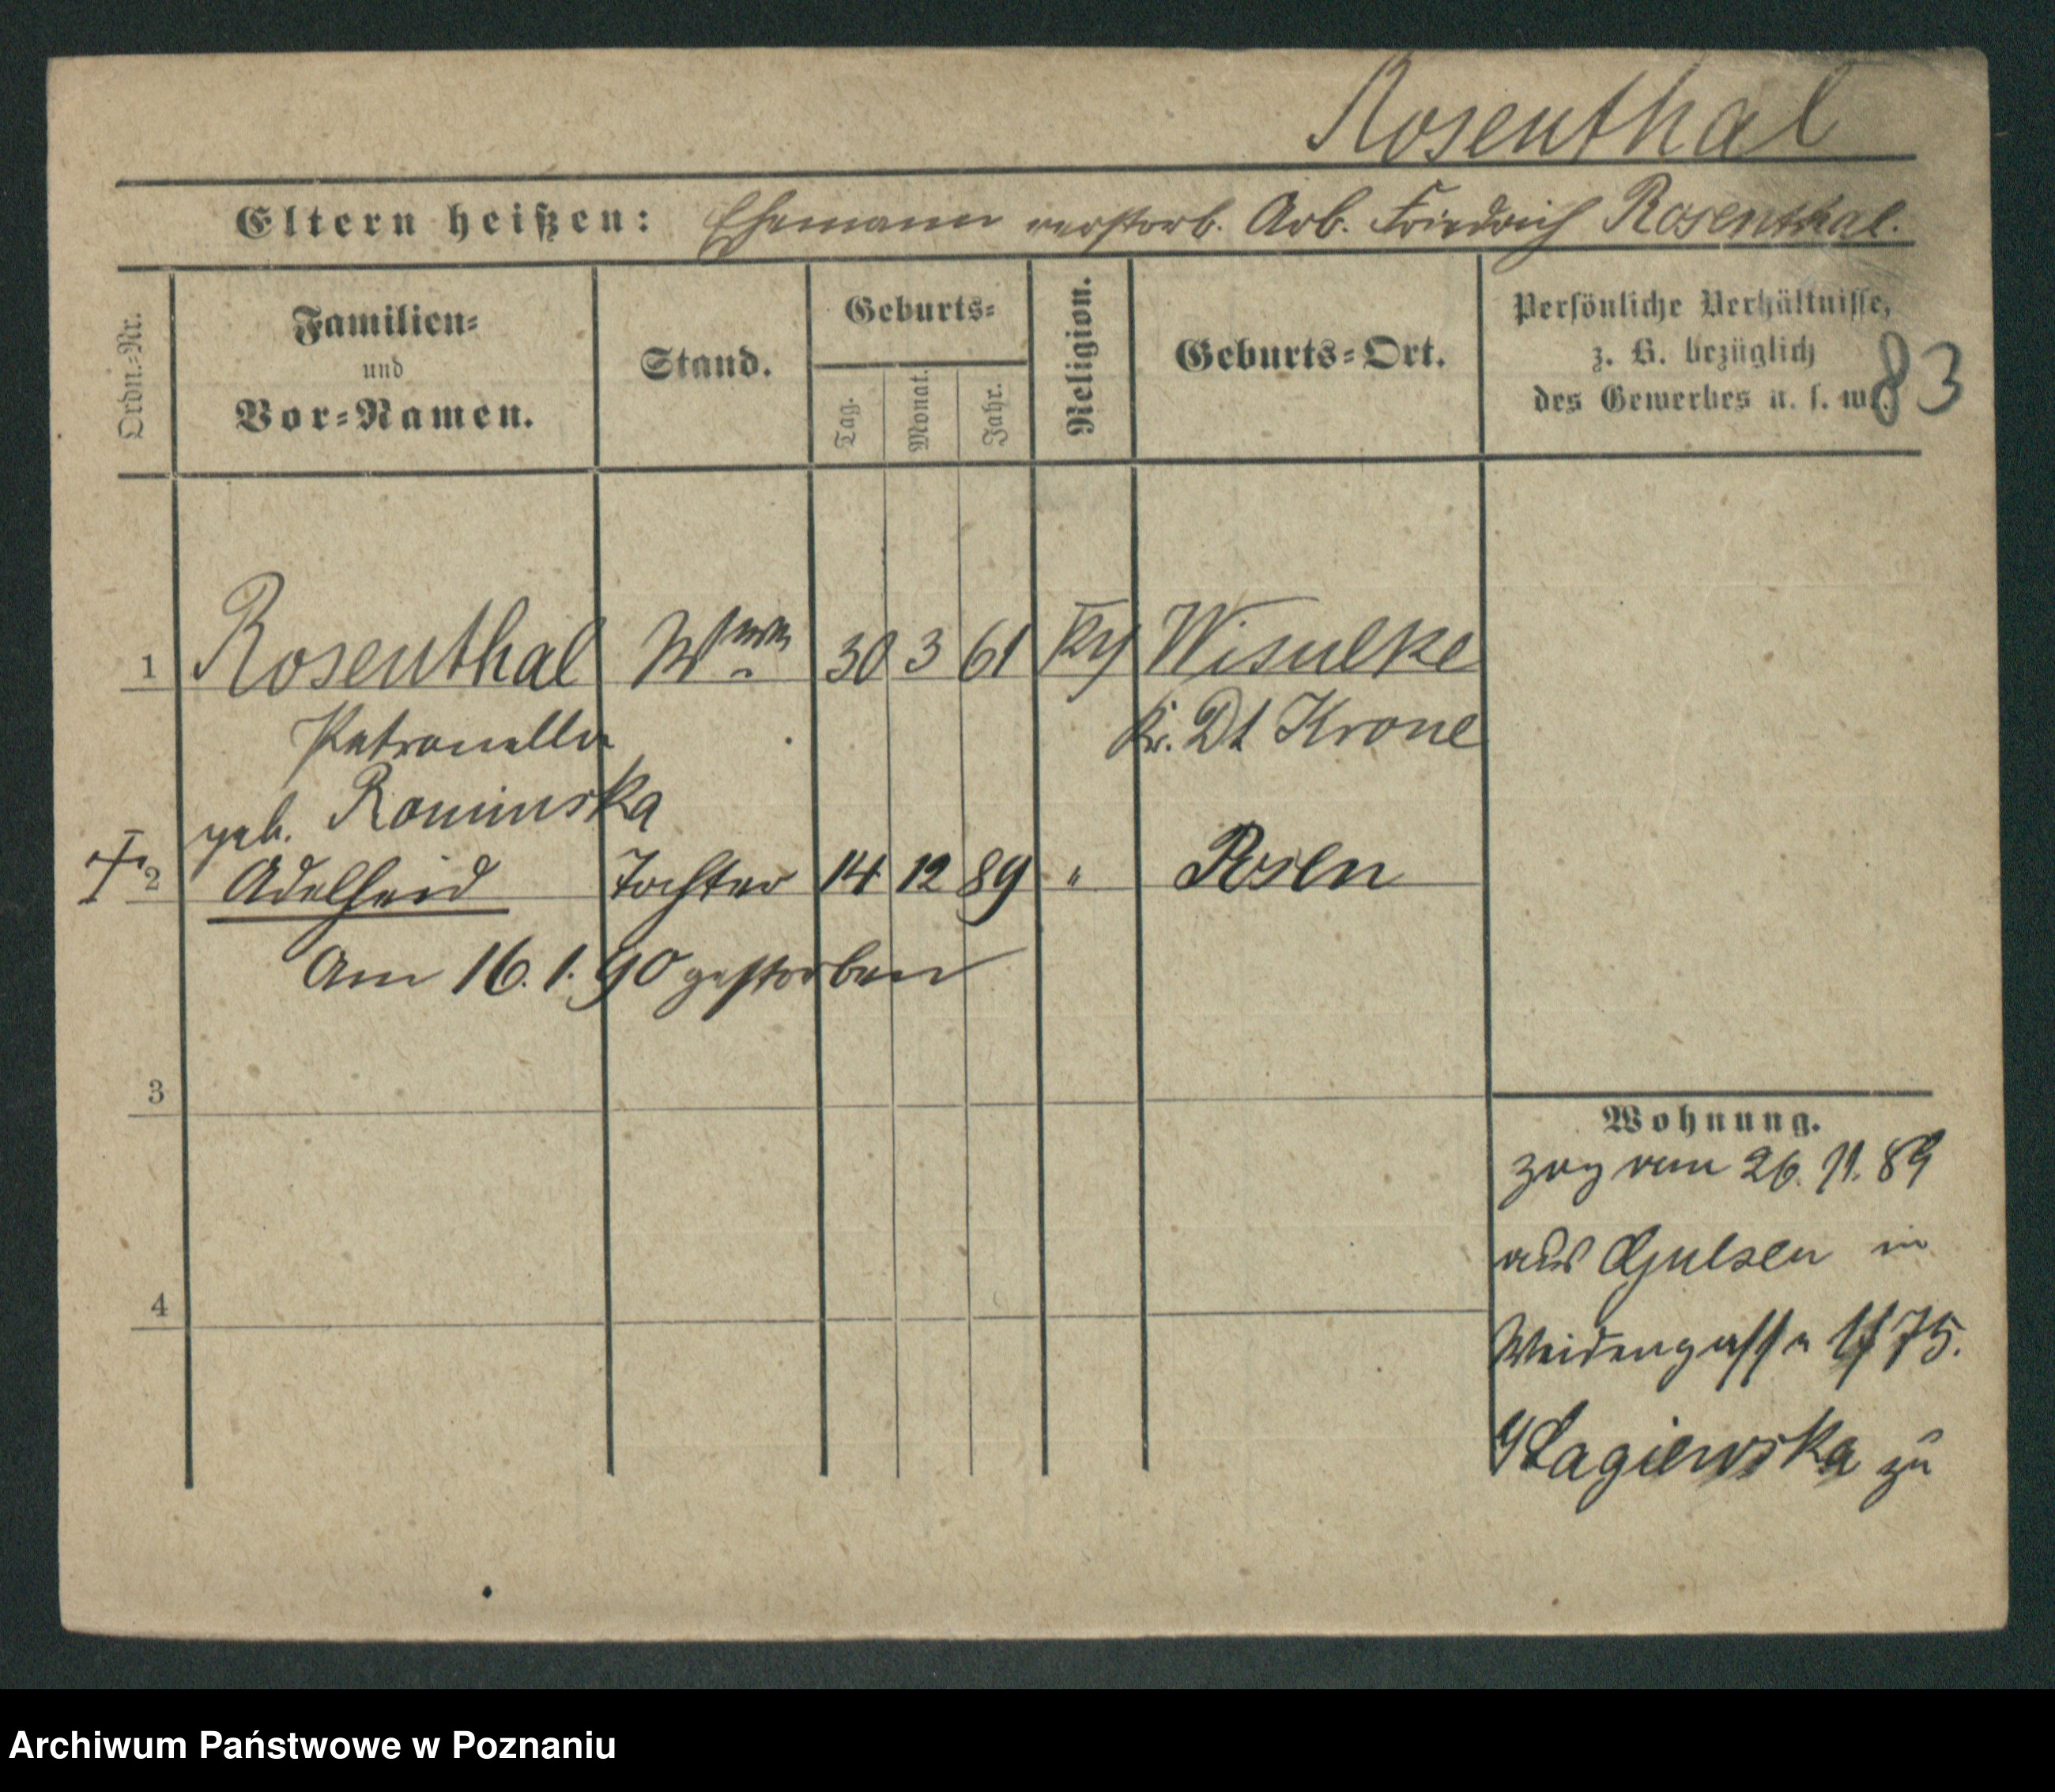 Rosenthal
Eltern heißen: Ehemann verstorb. Arb. Friedrich Rosenthal.
Ordn.-Nr.
Familien-
und
Vor-Namen.
Stand.
Geburts-
Tag.
Monat.
Jahr.
Religion.
Geburts-Ort.
Persönliche Verhältnisse,
z. B. bezüglich
des Gewerbes u. s. w.
83
1 Rosenthal Wwe 30 3 61 Wisulke
Petronella Kr. Dt Krone
geb. Rominska
2 Adelheid Tochter 14 12 89 " Posen
Am 16. 1. 90 gestorben
3
4
Wohnung.
zog am 26. 11. 89
aus Gulsen in
Weidengasse 1f 75.
Lagiewska zu
Archiwum Państwowe w Poznaniu